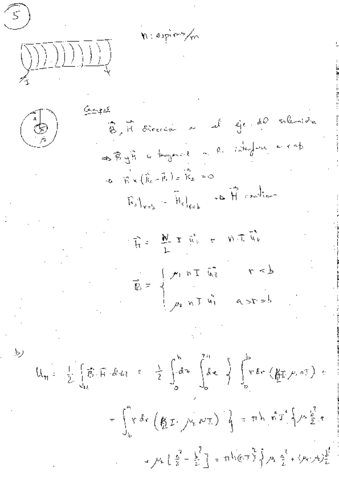 5
n: espiras/m
Campos
B⃗, H⃗ dirección el eje del solenoide
⇒ B⃗ y H⃗ tangencial interfase r=b
⇒ n⃗ × (H⃗₁ - H⃗₂) = = 0
H⃗₁|r=b = H⃗₂|r=b ⇒ H⃗ continuo
H⃗ = N/L I u⃗z = n I u⃗z
B⃗ = { μ₁ n I u⃗z r < b
μ₂ n I u⃗z a > r > b
b)
U_m = 1/2 ∫ B⃗ · H⃗ dvol = 1/2 ∫₀^h dz ∫₀^2π dα { ∫₀^b r dr (n I · μ₁ n I) +
+ ∫_b^a r dr (n I · μ₂ n I) } = π h n² I² { μ₁ b²/2 +
+ μ₂ [ a²/2 - b²/2 ] = π h (n I)² { μ₂ a²/2 + (μ₁ - μ₂) b²/2